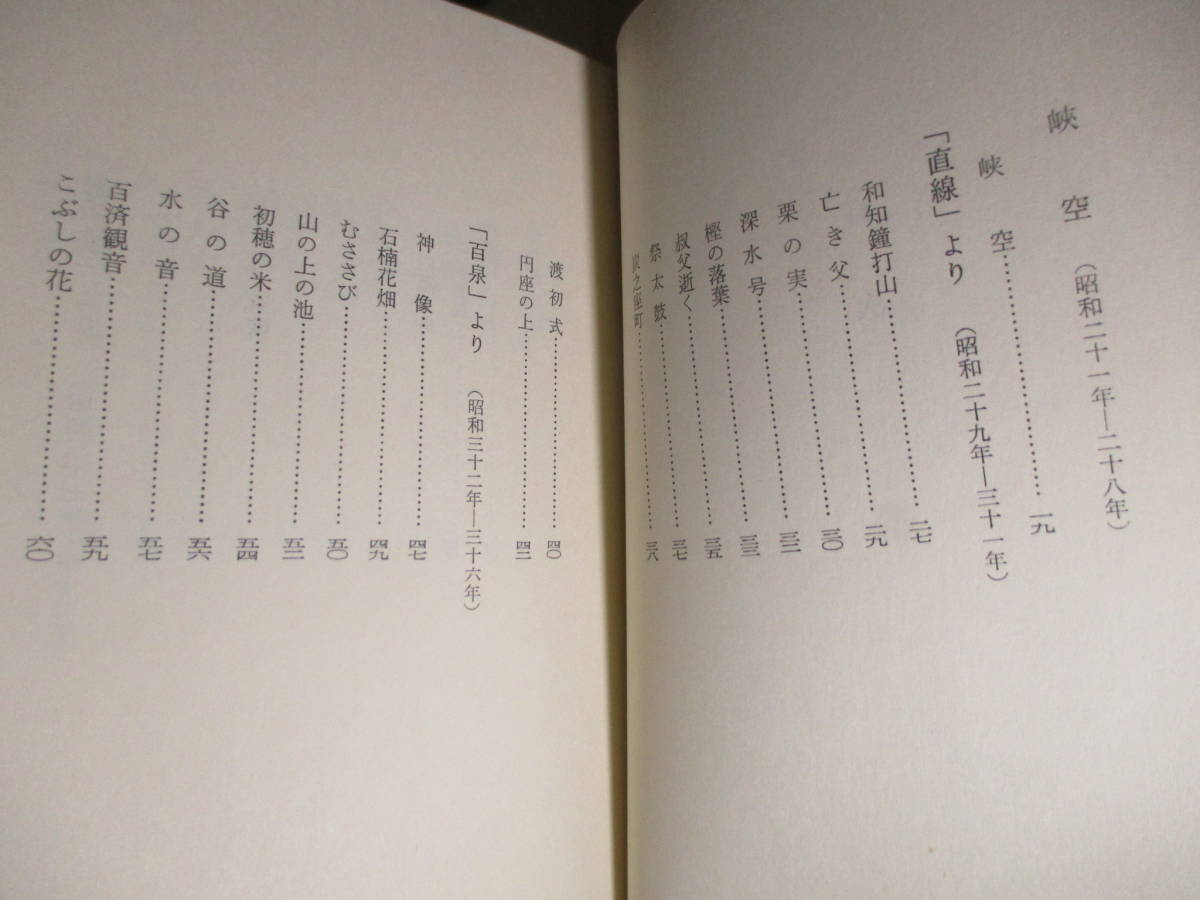 峡空（昭和二十一年―二十八年）
峡空…………一九
「直線」より（昭和二十九年―三十一年）
和知鐘打山…………二七
亡き父…………二九
栗の実…………三〇
深水号…………三二
樫の落葉…………三三
叔父逝く…………三五
祭太鼓…………三七
之座町…………三八
渡初式…………四〇
円座の上…………四二
「百泉」より（昭和三十二年―三十六年）
神像…………四七
石楠花畑…………四九
むささび…………五〇
山の上の池…………五二
初穂の米…………五四
谷の道…………五六
水の音…………五七
百済観音…………五九
こぶしの花…………六〇